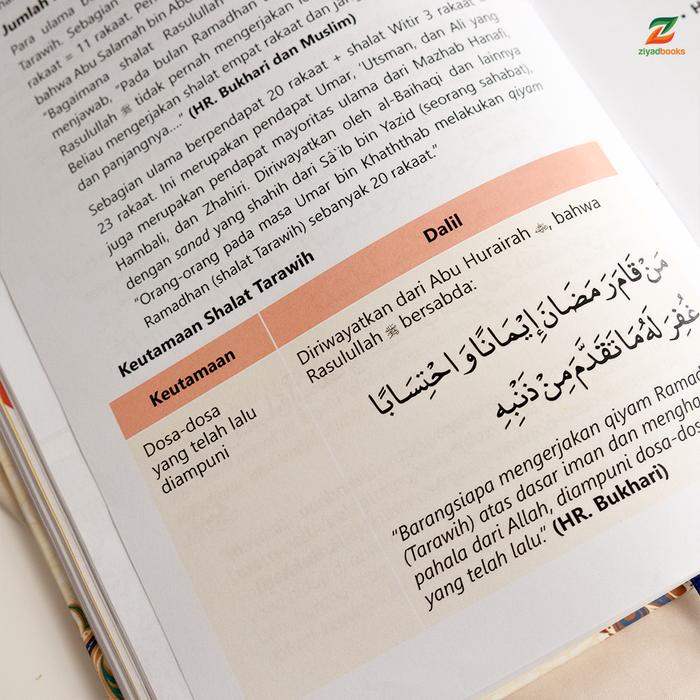 ziyadbooks
Jumlah
Para ulama
Tarawih. Sebagian
rakaat = 11 rakaat.
bahwa Abu Salamah bin
"Bagaimana shalat Rasulullah
menjawab, "Pada bulan Ramadhan
Rasulullah ﷺ tidak pernah mengerjakan
Beliau mengerjakan shalat empat rakaat dan
dan panjangnya...." (HR. Bukhari dan Muslim)
Sebagian ulama berpendapat 20 rakaat + shalat Witir 3 rakaat
23 rakaat. Ini merupakan pendapat Umar, 'Utsman, dan Ali yang
juga merupakan pendapat mayoritas ulama dari Mazhab Hanafi,
Hambali, dan Zhahiri. Diriwayatkan oleh al-Baihaqi dan lainnya
dengan sanad yang shahih dari Sâ`ib bin Yazid (seorang sahabat),
"Orang-orang pada masa Umar bin Khaththab melakukan qiyam
Ramadhan (shalat Tarawih) sebanyak 20 rakaat."
Keutamaan Shalat Tarawih
Keutamaan
Dalil
Dosa-dosa
yang telah lalu
diampuni
Diriwayatkan dari Abu Hurairah ؓ, bahwa
Rasulullah ﷺ bersabda:
مَنْ قَامَ رَمَضَانَ إِيْمَانًا وَاحْتِسَابًا
غُفِرَ لَهُ مَا تَقَدَّمَ مِنْ ذَنْبِهِ
"Barangsiapa mengerjakan qiyam
(Tarawih) atas dasar iman dan
pahala dari Allah, diampuni
yang telah lalu." (HR. Bukhari)